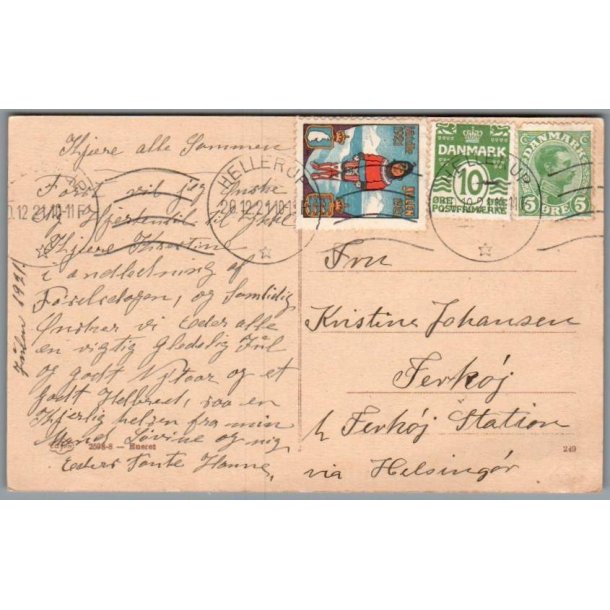 Kjære alle Sammen
Først vil jeg Ønske
og Hjertenlil til Lykke
Kjære Kirstine
i andledning af
Føselsdagen, og Samtidig
Ønsker vi Eder alle
en rigtig Glædelig Jül
og godt Nytaar og et
godt Helbred, saa en
Kjærlig helsen fra min
Mand Lovise og mig
Eders Tante Hanne,
Jülen 1921.
HELLERUP
20.12.21.10-11
JULEN
1921
DANMARK
10
ØRE ØRE
POSTFRIMÆRKE
DANMARK
5 ØRE 5
Fru
Kristine Johansen
Ferköj
h Ferköj Station
via Helsingör
2598-8 — Eneret
249